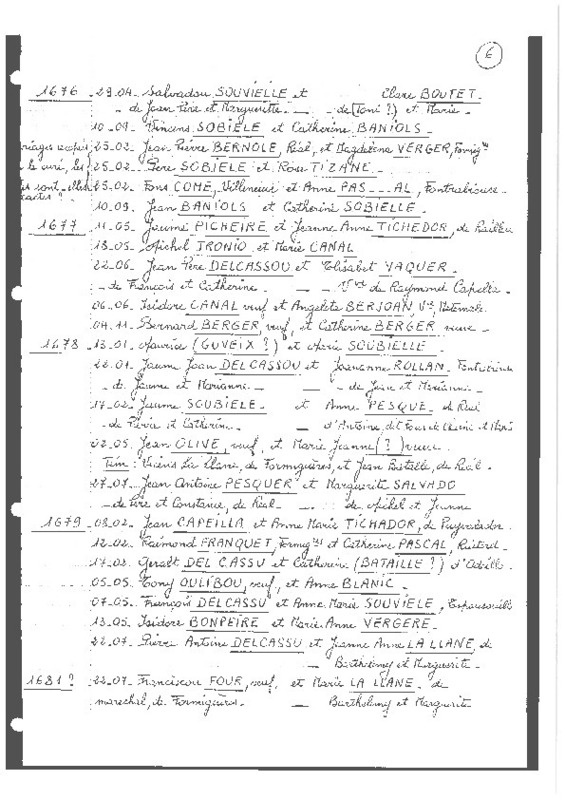 6
1676 - 29.04. Salvadou SOUVIELLE et Clare BOUTET -
- de Jean Père et Marguerite - - de (Toni ?) et Marie -
10.09. Vincens SOBIELE et Catherine BANIOLS -
25.02. Jean Pierre BERNOLE, Réal, et Magdelena VERGER, Formig
25.02. Pere SOBIELE et Rose TIZANE -
25.02. Fons COME, Villeneuve et Anne PAS___AL, Fontrabiouse -
10.09. Jean BANIOLS et Catherine SOBIELLE -
1677 - 11.05. Jaume PICHEIRE et Jeanne Anne TICHEDOR, de Railleu
18.05. Michel TRONIO et Marie CANAL
22.06. Jean Pere DELCASSOU et Elisabet VAQUER -
- de François et Catherine - - Vve de Raymond Capella -
06.06. Isidore CANAL veuf et Angeleta BERJOAN, Vve
04.11. Bernard BERGER, veuf, et Catherine BERGER veuve -
1678 - 13.01. Maurice (GUVEIX ?) et Marie SOUBIELLE -
22.01. Jaume Joan DELCASSOU et ROLLAN -
- de Jaume et Marianne - - - de Jean et Marianne -
17.02. Jaume SOUBIELE - et Anne PESQUE - de Réal
- de Pierre et Catherine - - d'Antoine, dit
02.05. Jean OLIVE, veuf, et Marie Jeanne (?) veuve -
Tém : La Llane, de Formiguères, et Jean Bataille, de Réal -
27.07. Jean Antoine PESQUER et Marguerite SALVADO
- de Pere et Constance, de Réal - - de Michel et Jeanne
1679 - 08.02. Jean CAPEILLA et Anne Marie TICHADOR, de Puyvalador -
12.02. Raimond FRANQUET, Formig et Catherine PASCAL,
17.02. Geralt DEL CASSU et Catherine (BATAILLE ?) d'Odeillo -
05.05. Tony OULIBOU, veuf, et Anne BLANIC -
07.05. François DELCASSU et Anne Marie SOUVIELE,
13.05. Isidore BONPEIRE et Marie Anne VERGERE -
22.07. Pierre Antoine DELCASSU et Jeanne Anne LA LLANE, de
- Barthelemy et Marguerite -
1681 ? - 22.07. Franciscou FOUR, veuf, et Marie LA LLANE, de
marechal, de Formiguères - - Barthelemy et Marguerite